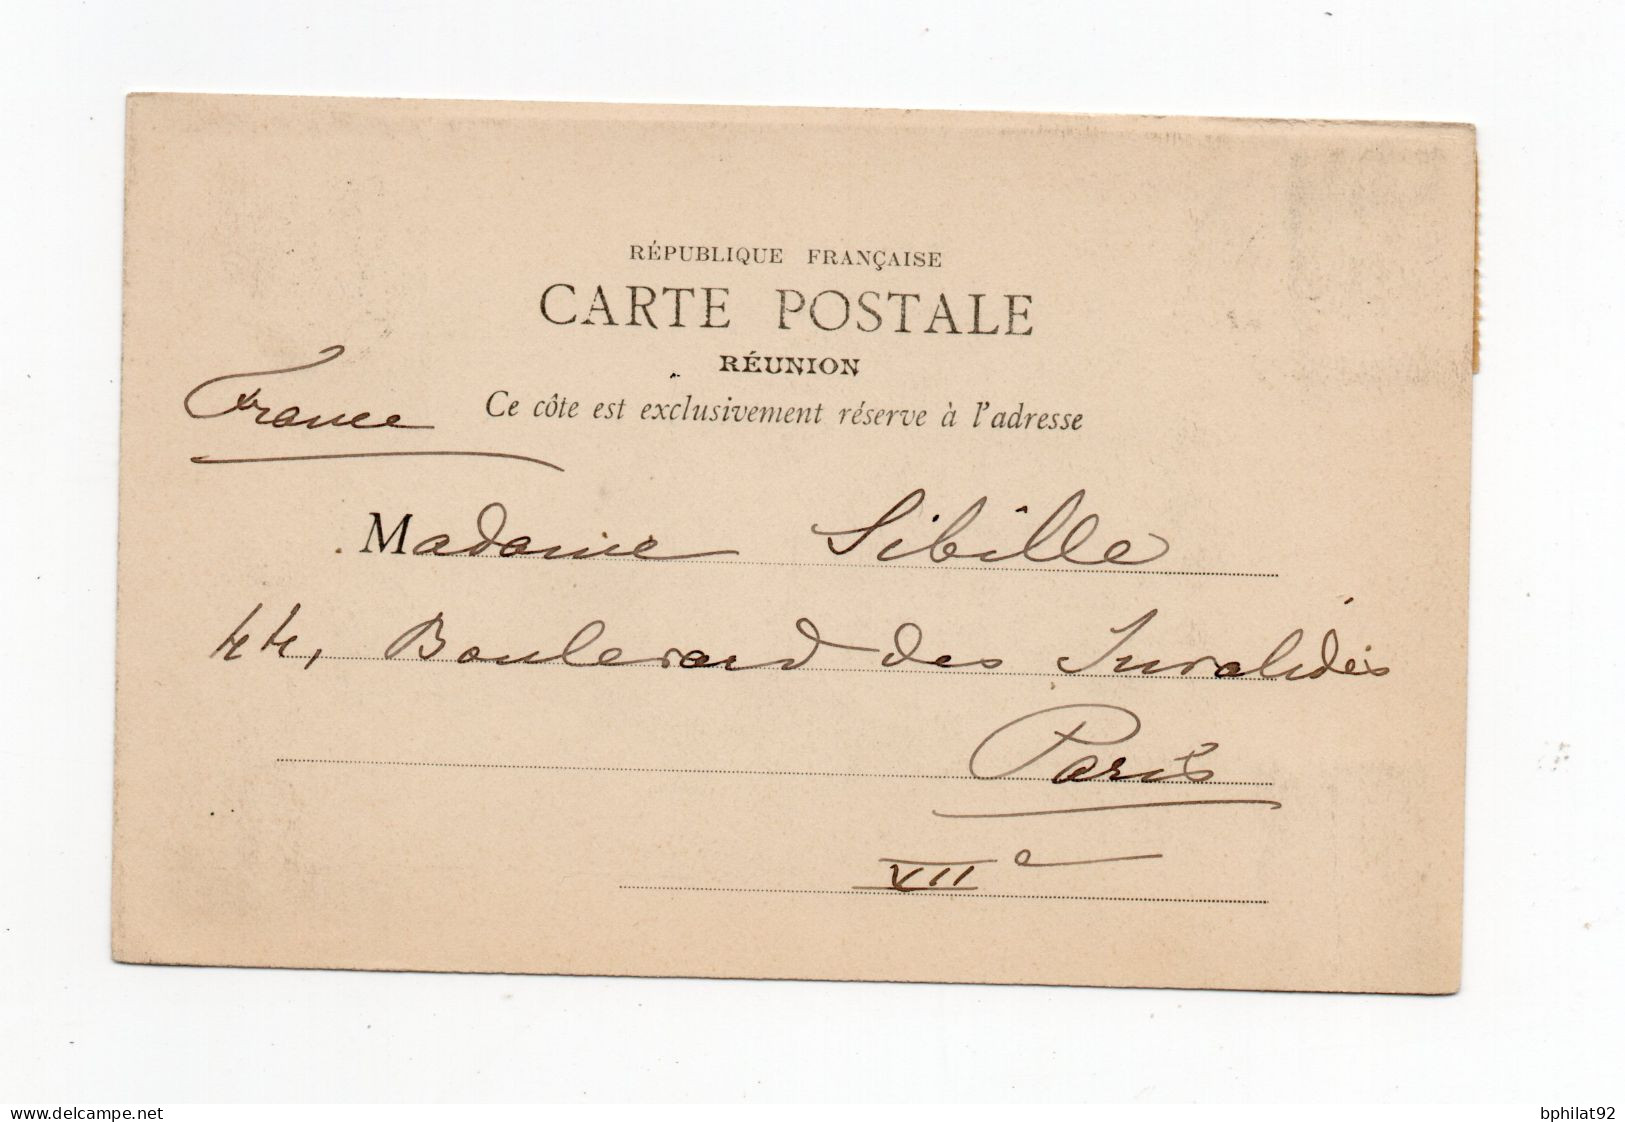 RÉPUBLIQUE FRANÇAISE
CARTE POSTALE
RÉUNION
Ce côte est exclusivement réserve à l'adresse
France
Madame Sibille
44, Boulevard des Invalides
Paris
VIIe
www.delcampe.net
bphilat92